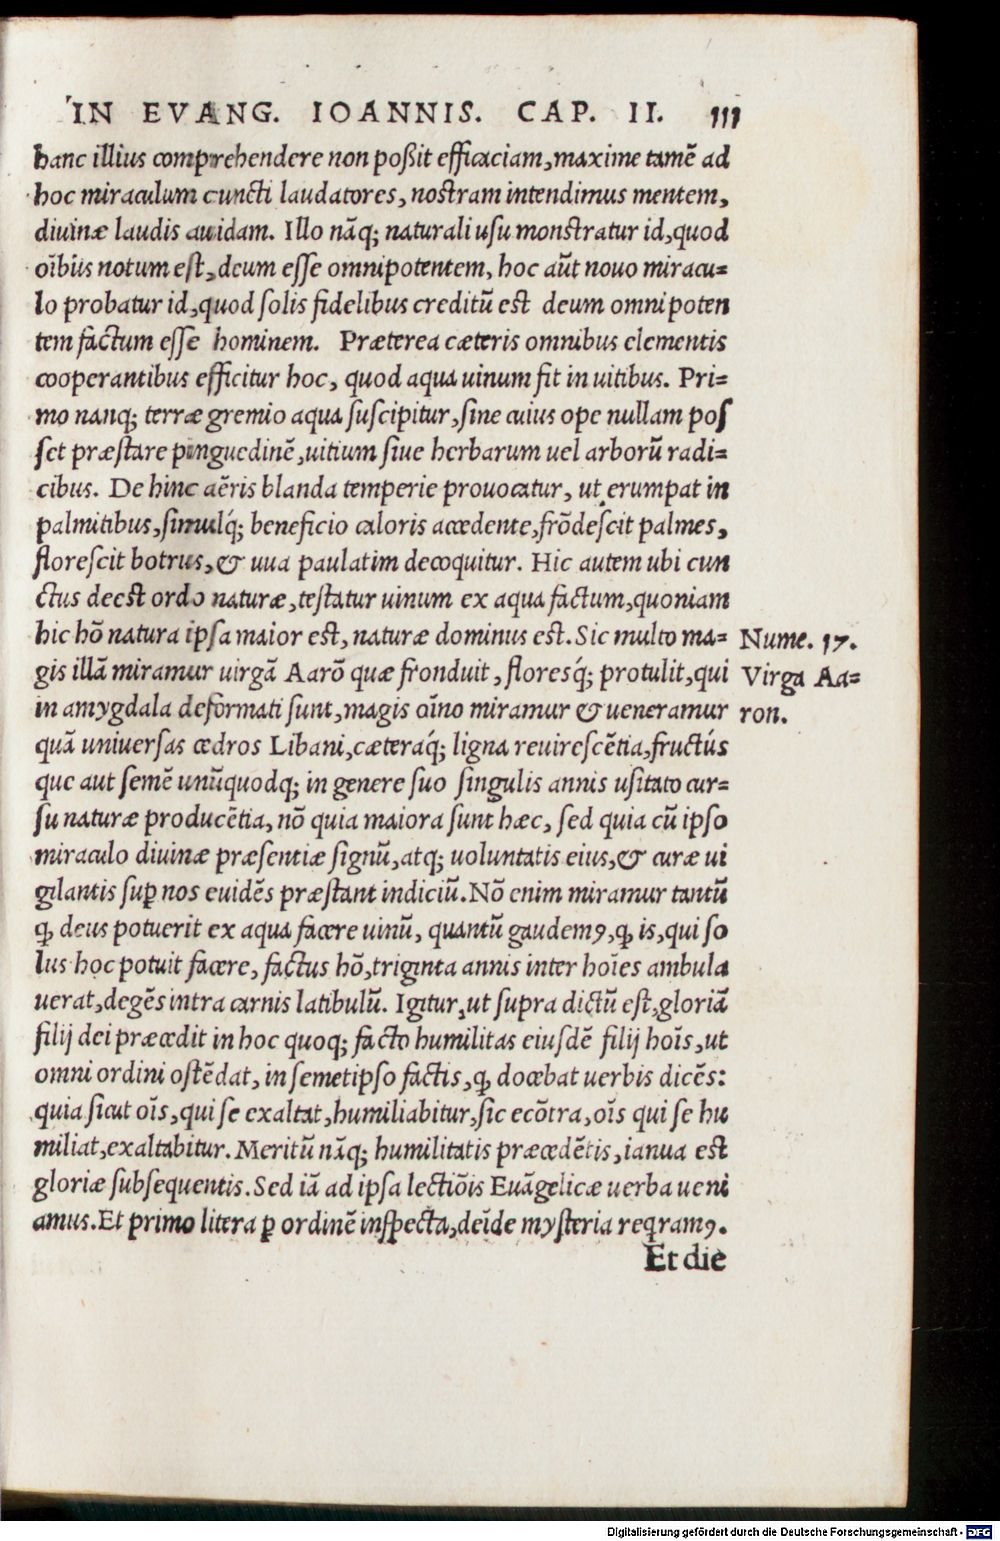 IN EVANG. IOANNIS. CAP. II. 111
hanc illius comprehendere non poßit efficaciam, maxime tamē ad
hoc miraculum cuncti laudatores, nostram intendimus mentem,
diuinæ laudis auidam. Illo nāq; naturali usu monstratur id, quod
oībus notum est, deum esse omnipotentem, hoc aūt nouo miracu=
lo probatur id, quod solis fidelibus creditū est deum omnipoten
tem factum esse hominem. Præterea cæteris omnibus elementis
cooperantibus efficitur hoc, quod aqua uinum fit in uitibus. Pri=
mo nanq; terræ gremio aqua suscipitur, sine cuius ope nullam pos
set præstare pinguedinē, uitium siue herbarum uel arborū radi=
cibus. De hinc aëris blanda temperie prouocatur, ut erumpat in
palmitibus, simulq́; beneficio caloris accedente, frōdescit palmes,
florescit botrus, & uua paulatim decoquitur. Hic autem ubi cun
ctus deest ordo naturæ, testatur uinum ex aqua factum, quoniam
hic hō natura ipsa maior est, naturæ dominus est. Sic multo ma=
Nume. 17.
gis illā miramur uirgā Aarō quæ fronduit, floresq́; protulit, qui
Virga Aa=
in amygdala deformati sunt, magis oīno miramur & ueneramur
ron.
quā uniuersas cedros Libani, cæteraq́; ligna reuirescētia, fructús
que aut semē unūquodq; in genere suo singulis annis usitato cur=
su naturæ producētia, nō quia maiora sunt hæc, sed quia cū ipso
miraculo diuinæ præsentiæ signū, atq; uoluntatis eius, & curæ ui
gilantis suꝑ nos euidēs præstant indiciū. Nō enim miramur tantū
ꝙ deus potuerit ex aqua facere uinū, quantū gaudemꝰ, ꝙ is, qui so
lus hoc potuit facere, factus hō, triginta annis inter hoīes ambula
uerat, degēs intra carnis latibulū. Igitur, ut supra dictū est, gloriā
filij dei præcedit in hoc quoq; facto humilitas eiusdē filij hoīs, ut
omni ordini ostēdat, in semetipso factis, ꝙ docebat uerbis dicēs:
quia sicut oīs, qui se exaltat, humiliabitur, sic ecōtra, oīs qui se hu
miliat, exaltabitur. Meritū nāq; humilitatis præcedētis, ianua est
gloriæ subsequentis. Sed iā ad ipsa lectiōis Euāgelicæ uerba ueni
amus. Et primo litera ꝑ ordinē inspecta, deīde mysteria reqramꝰ.
Et die
Digitalisierung gefördert durch die Deutsche Forschungsgemeinschaft - DFG